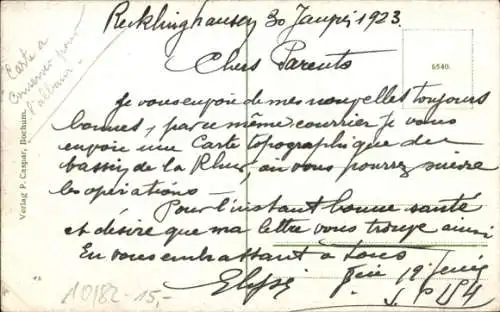 Recklinghausen 30 Janvier 1923
Carte a
Conserver pour
l'album
Chers Parents
9540.
Je vous envoie de mes nouvelles toujours
bonnes, par ce même courrier je vous
envoie une Carte topographique du
bassin de la Rhur, où vous pourrez suivre
les opérations —
Pour l'instant bonne santé
et désire que ma lettre vous trouve ainsi
En vous embrassant à tous
Verlag P. Caspar, Bochum.
10182-15,-